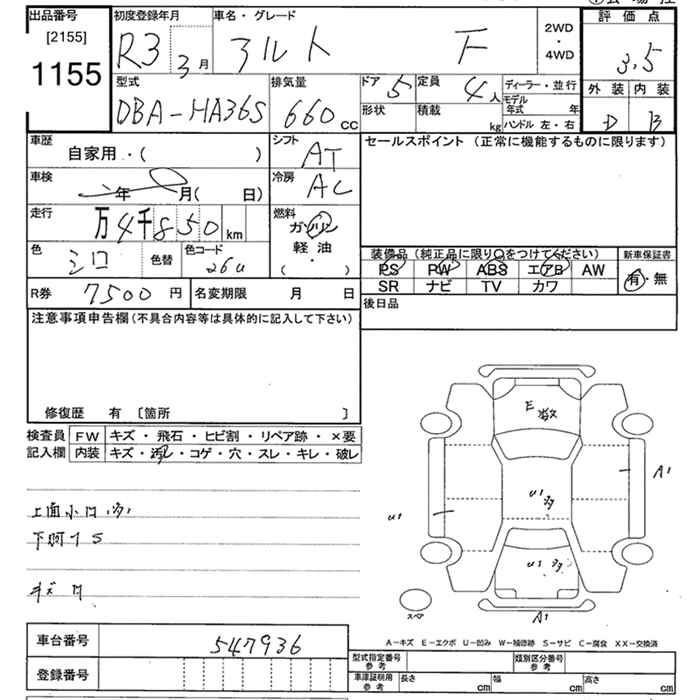 出品番号 初度登録年月 車名・グレード 評価点
[2155]
1155
R3 3月 アルト F 2WD・4WD 3.5
型式 排気量 ドア 5 定員 4人 ディーラー・並行 外装 内装
DBA-HA36S 660cc 形状 積載 kg モデル年式 年 D B
ハンドル 左・右
車歴 自家用・( ) シフト AT セールスポイント (正常に機能するものに限ります)
車検 年 月( 日) 冷房 AC
走行 万4千850km 燃料 ガソリン・軽油 ( )
色 シロ 色替 色コード 26U
装備品(純正品に限り○をつけてください) 新車保証書
PS PW ABS エアB AW 有・無
SR ナビ TV カワ
R券 7500円 名変期限 月 日 後日品
注意事項申告欄(不具合内容等は具体的に記入して下さい)
修復歴 有 〔箇所 〕
検査員記入欄 FW キズ・飛石・ヒビ割・リペア跡・×要
内装 キズ・汚レ・コゲ・穴・スレ・キレ・破レ
上面小凹多
下廻サS
キズ凹
E
U1
A1
U1多
U1多
A1
スペア
A-キズ E-エクボ U-凹み W-補修跡 S-サビ C-腐食 XX-交換済
車台番号 547936
登録番号
型式指定番号参考 類別区分番号参考
車庫証明用参考 長さ cm 幅 cm 高さ cm